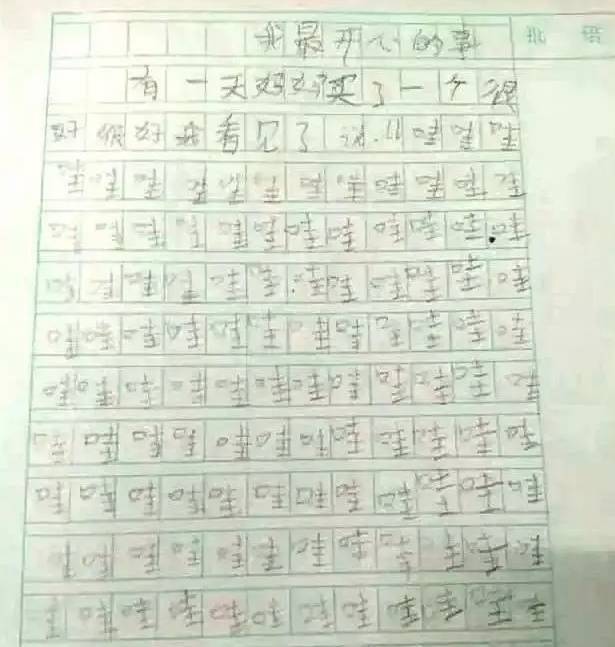 我最开心的事 批语
有一天妈妈买了一个很
好很好我看见了说:“哇哇哇
哇哇哇哇哇哇哇哇哇哇哇哇
哇哇哇哇哇哇哇哇哇哇哇哇
哇哇哇哇哇哇哇哇哇哇哇哇
哇哇哇哇哇哇哇哇哇哇哇哇
哇哇哇哇哇哇哇哇哇哇哇哇
哇哇哇哇哇哇哇哇哇哇哇哇
哇哇哇哇哇哇哇哇哇哇哇哇
哇哇哇哇哇哇哇哇哇哇哇哇
哇哇哇哇哇哇哇哇哇哇哇哇